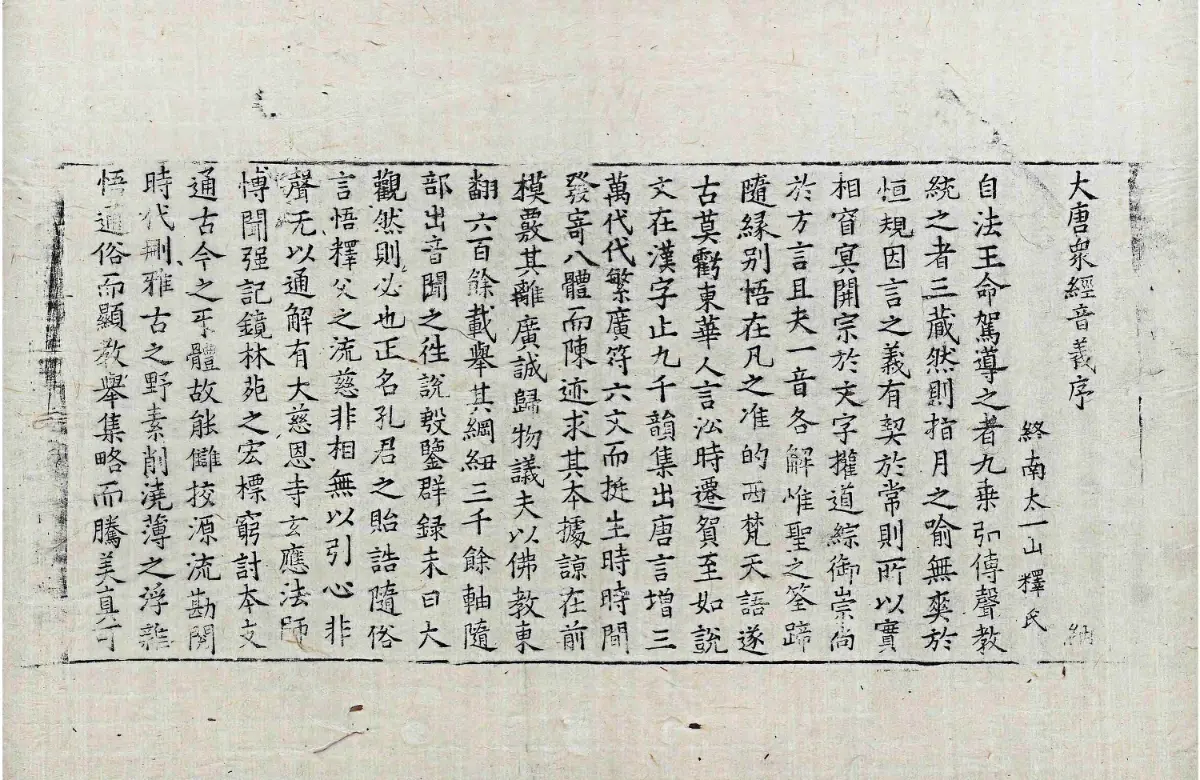 大唐衆經音義序 納
終南太一山釋氏
自法王命駕導之者九乗弘傳聲教
統之者三藏然則指月之喻無爽於
恒規因言之義有契於常則所以實
相窅冥開宗於天字權道綜御崇尚
於方言且夫一音各解唯聖之筌蹄
隨縁别悟在凡之准的西梵天語遂
古莫虧東華人言訟時遷賀至如說
文在漢字止九千韻集出唐言增三
萬代代繁廣符六文而挺生時時間
發寄八體而陳迹求其本據諒在前
模覈其離廣誠歸物議夫以佛教東
翻六百餘載舉其綱紐三千餘軸隨
部出音聞之徃說㲉鑒群録未曰大
觀然則必也正名孔君之貽誥隨俗
言悟釋父之流慈非相無以引心非
聲无以通解有大慈恩寺玄應法師
愽聞强記鏡林菀之宏標窮討本攴
通古今之㸦體故能讎挍源流勘閱
時代刪雅古之野素削澆薄之浮雜
悟通俗而顯教舉集略而騰美真可